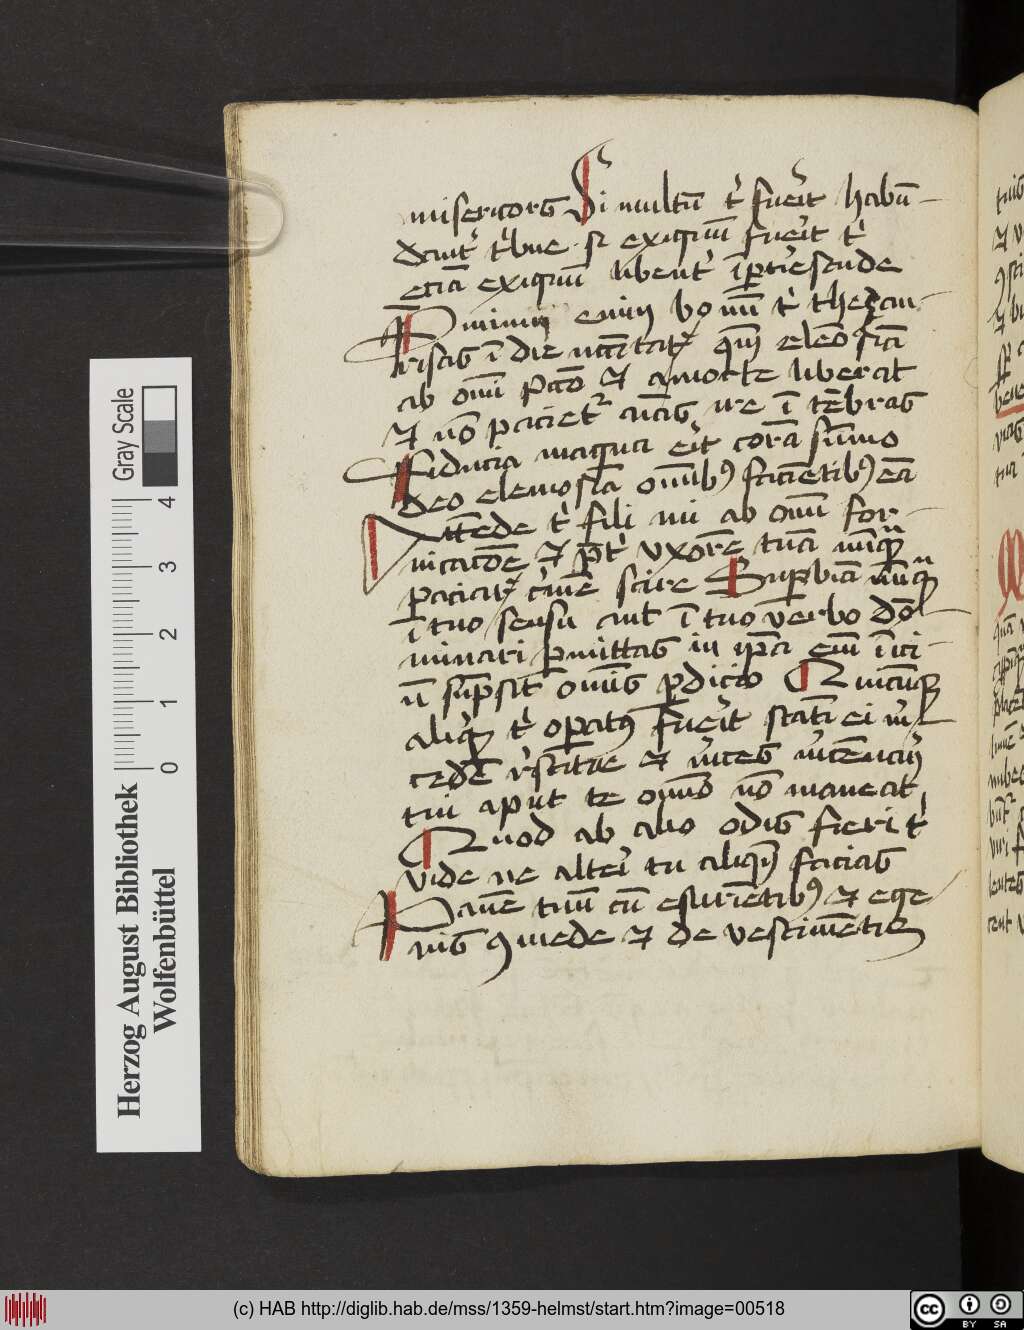 misericors Si multū t' fuerit habūdant' t'bue si exiguū fuerit t'
eciā exiguū libent' īpertire stude
Premium enim bonū t' thezaurisas ī die necessitatis qm̄ elemosina
ab omni peccato et a morte liberat
et nō pacietur aīas ire ī tenebras
Fiducia magna erit corā summo
deo elemosina omnibus facientibus eā
Attende t' fili mi ab omni fornicacione et preter uxorem tuā nūquam
paciaris crimen scire Superbiā nūquam
ī tuo sensu aut ī tuo verbo dominari permittas in ipsa enim iniciū sumpsit omnis perdicio Quicumque
aliquid t' operatus fuerit statim ei mercedem restitue et merces mercenarii
tui aput te omnino nō maneat
Quod ab alio odis fieri t'
vide ne alteri tu aliquando facias
Panem tuum cum esurientibus et egenis comede et de vestimentis
Herzog August Bibliothek
Wolfenbüttel
Gray Scale
0 1 2 3 4
(c) HAB http://diglib.hab.de/mss/1359-helmst/start.htm?image=00518
cc BY SA